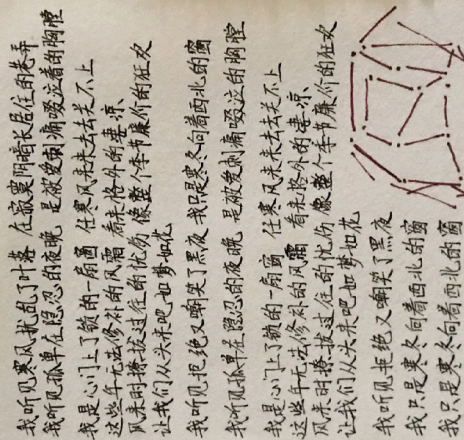 我听见寒风扰乱了叶落 在寂寞阴暗长居住的巷弄
我听见孤单在隐忍的夜晚 是被爱刺痛啜泣着的胸膛
我是心门上了锁的一扇窗 任寒风来来去去关不上
这些年无法修补的风霜 看来格外的凄凉
风来时撩拨过往的忧伤 像整个季节廉价的狂欢
让我们从头来吧 如梦如花
我听见拒绝又嘲笑了黑夜 我只是寒冬向着西北的窗
我听见孤单在隐忍的夜晚 是被爱刺痛啜泣的胸膛
我是心门上了锁的一扇窗 任寒风来来去去关不上
这些年无法修补的风霜 看来格外的凄凉
风来时撩拨过往的忧伤 像整个季节廉价的狂欢
让我们从头来吧 如梦如花
我听见拒绝又嘲笑了黑夜
我只是寒冬向着西北的窗
我只是寒冬向着西北的窗